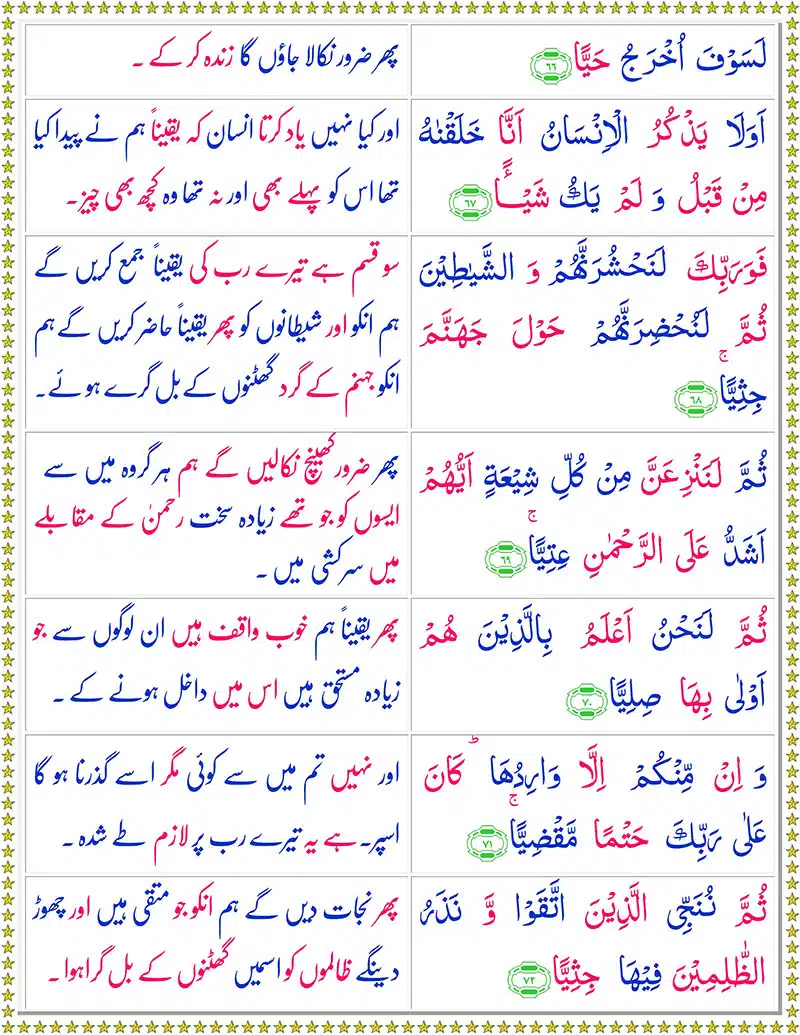 لَسَوْفَ اُخْرَجُ حَيًّا ﴿۶۶﴾
پھر ضرور نکالا جاؤں گا زندہ کر کے ۔
اَوَلَا يَذْكُرُ الْاِنْسَانُ اَنَّا خَلَقْنٰهُ
مِنْ قَبْلُ وَ لَمْ يَكُ شَيْـًٔـا ﴿۶۷﴾
اور کیا نہیں یاد کرتا انسان کہ یقیناً ہم نے پیدا کیا
تھا اس کو پہلے بھی اور نہ تھا وہ کچھ بھی چیز۔
فَوَرَبِّكَ لَنَحْشُرَنَّهُمْ وَ الشَّيٰطِيْنَ
ثُمَّ لَنُحْضِرَنَّهُمْ حَوْلَ جَهَنَّمَ
جِثِيًّا ۚ ﴿۶۸﴾
سو قسم ہے تیرے رب کی یقیناً جمع کریں گے
ہم انکو اور شیطانوں کو پھر یقیناً حاضر کریں گے ہم
انکو جہنم کے گرد گھٹنوں کے بل گرے ہوئے۔
ثُمَّ لَنَنْزِعَنَّ مِنْ كُلِّ شِيْعَةٍ اَيُّهُمْ
اَشَدُّ عَلَى الرَّحْمٰنِ عِتِيًّا ۚ ﴿۶۹﴾
پھر ضرور کھینچ نکالیں گے ہم ہر گروہ میں سے
ایسوں کو جو تھے زیادہ سخت رحمٰن کے مقابلے
میں سرکشی میں ۔
ثُمَّ لَنَحْنُ اَعْلَمُ بِالَّذِيْنَ هُمْ
اَوْلٰى بِهَا صِلِيًّا ﴿۷۰﴾
پھر یقیناً ہم خوب واقف ہیں ان لوگوں سے جو
زیادہ مستحق ہیں اس میں داخل ہونے کے ۔
وَ اِنْ مِّنْكُمْ اِلَّا وَارِدُهَا ؕ كَانَ
عَلٰى رَبِّكَ حَتْمًا مَّقْضِيًّا ۚ ﴿۷۱﴾
اور نہیں تم میں سے کوئی مگر اسے گذرنا ہو گا
اسپر۔ ہے یہ تیرے رب پر لازم طے شدہ ۔
ثُمَّ نُنَجِّى الَّذِيْنَ اتَّقَوْا وَّ نَذَرُ
الظّٰلِمِيْنَ فِيْهَا جِثِيًّا ﴿۷۲﴾
پھر نجات دیں گے ہم انکو جو متقی ہیں اور چھوڑ
دینگے ظالموں کو اسمیں گھٹنوں کے بل گرا ہوا ۔